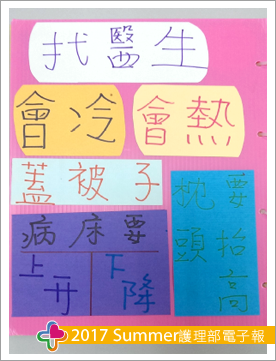 找醫生
會冷
會熱
蓋被子
枕頭
要抬高
病床要
上升
下降
2017 Summer護理部電子報